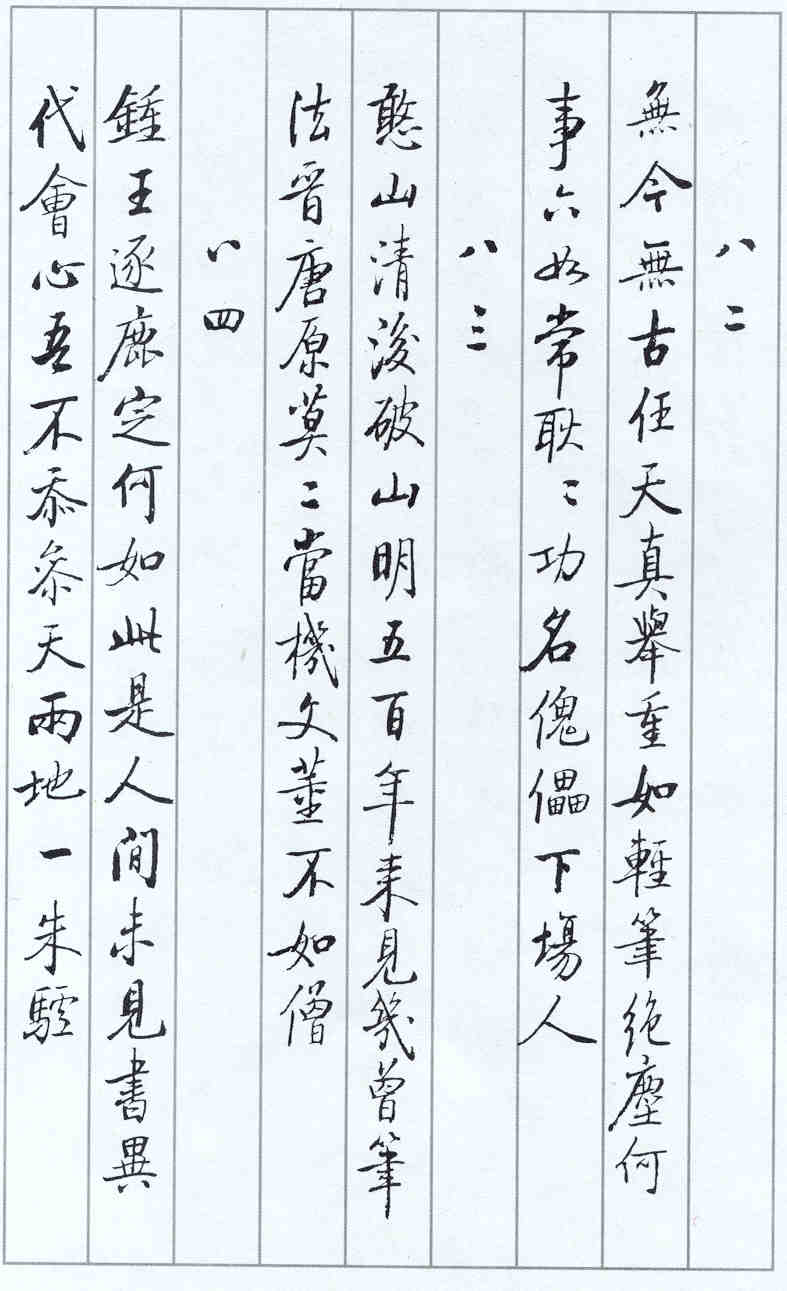 八二
無今無古任天真舉重如輕筆絶塵何
事六如常耿〻功名傀儡下場人
八三
憨山清後破山明五百年來見幾曾筆
法晉唐原莫〻當機文董不如僧
八四
鍾王逐鹿定何如此是人間未見書異
代會心吾不忝參天兩地一朱驢